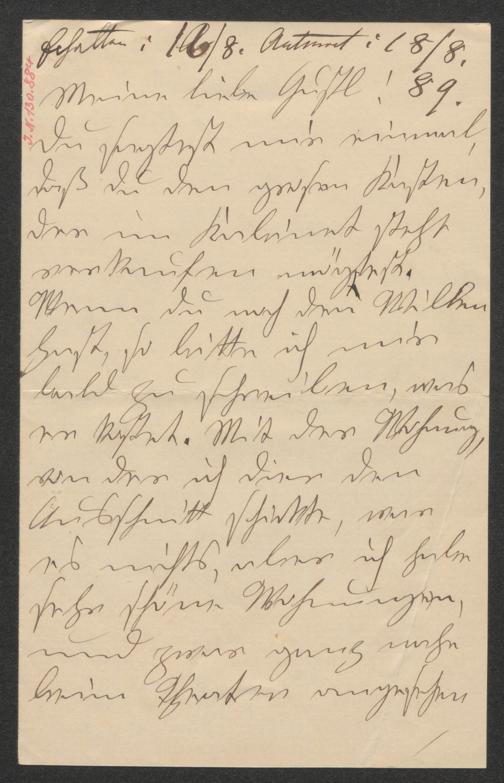 Erhalten: 16/8. Antwort: 18/8.
89.
I.N.130.884
Meine liebe Gustl!
du sagtest mir einmal,
daß du den großen Kasten,
der im Kabinet steht
verkaufen möchtest.
Wenn du noch den Willen
hast, so bitte ich mir
bald zu schreiben, was
er kostet. Mit der Wohnung,
von der ich dier den
Ausschnitt schickte, war
es nichts, aber ich habe
sehr schöne Wohnungen,
und zwar ganz nahe
beim Theater angesehen